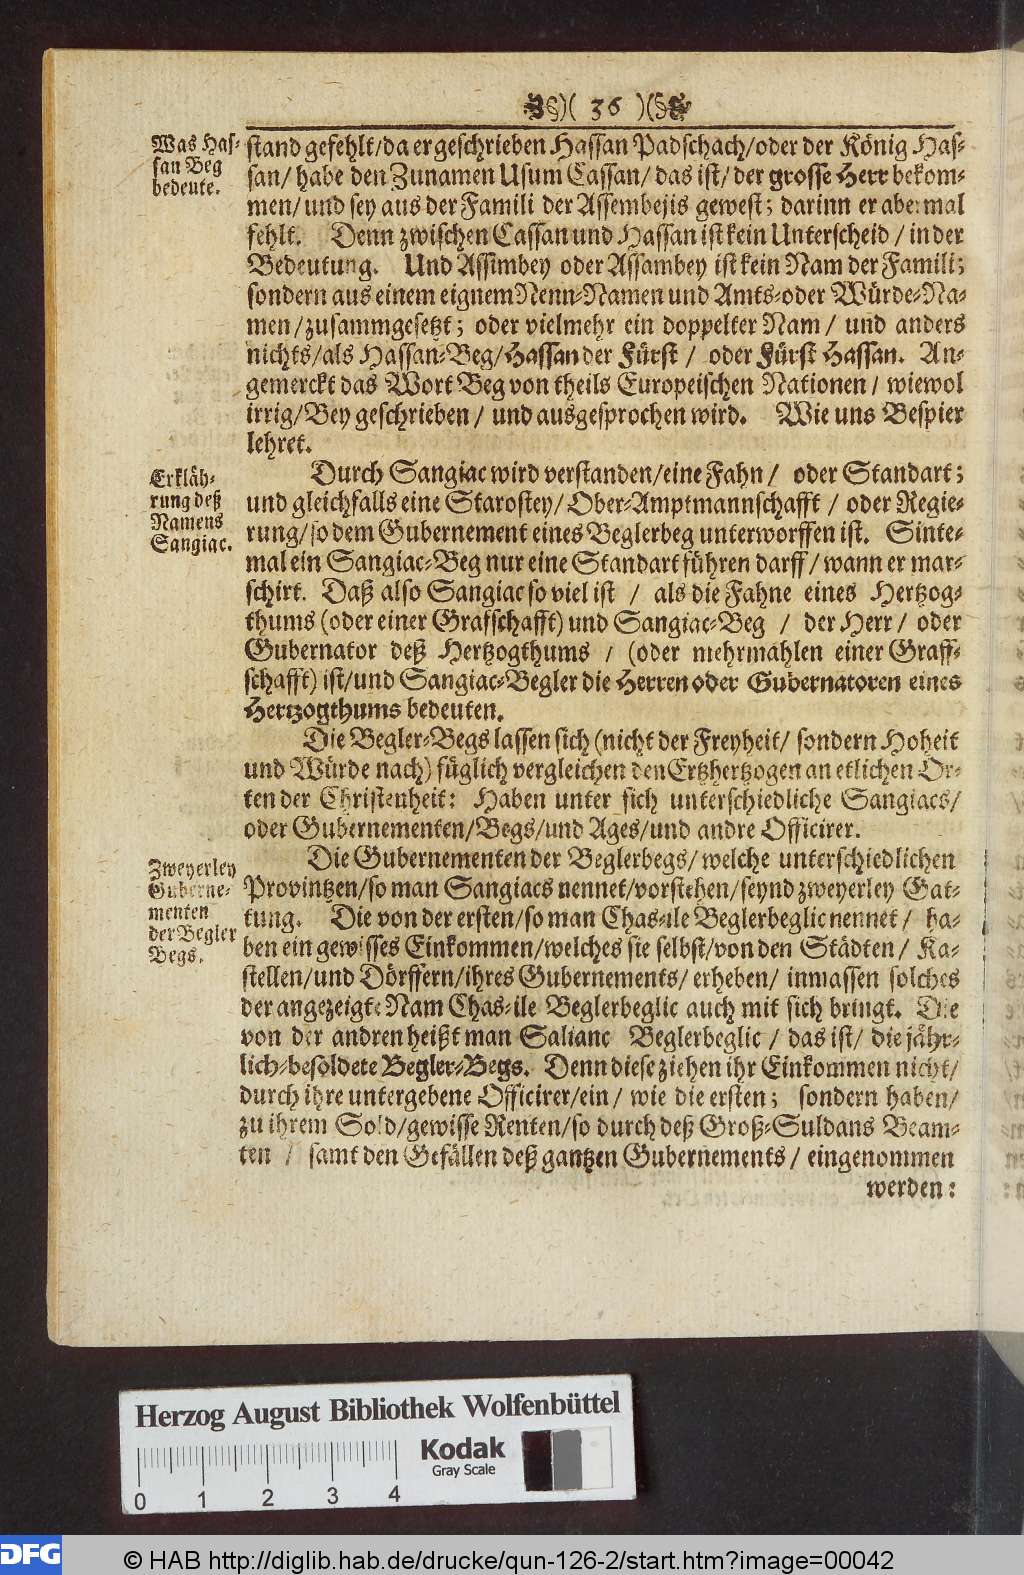 )( 36 )(
Was Has-
san Beg
bedeute.
stand gefehlt/da er geschrieben Hassan Padschach/oder der König Has-
san/ habe den Zunamen Usum Cassan/ das ist/ der grosse Herr bekom-
men/ und sey aus der Famili der Assembejis gewest; darinn er abermal
fehlt. Denn zwischen Cassan und Hassan ist kein Unterscheid / in der
Bedeutung. Und Assimbey oder Assambey ist kein Nam der Famili;
sondern aus einem eignem Nenn-Namen und Amts-oder Würde-Na-
men/zusammgesetzt; oder vielmehr ein doppelter Nam / und anders
nichts/als Hassan-Beg/Hassan der Fürst / oder Fürst Hassan. An-
gemerckt das Wort Beg von theils Europeischen Nationen / wiewol
irrig/Bey geschrieben / und ausgesprochen wird. Wie uns Bespier
lehret.
Erkläh-
rung deß
Namens
Sangiac.
Durch Sangiac wird verstanden/eine Fahn / oder Standart;
und gleichfalls eine Starostey/ Ober-Amptmannschafft / oder Regie-
rung/so dem Gubernement eines Beglerbeg unterworffen ist. Sinte-
mal ein Sangiac-Beg nur eine Standart führen darff/ wann er mar-
schirt. Daß also Sangiac so viel ist / als die Fahne eines Hertzog-
thums (oder einer Grafschafft) und Sangiac-Beg / der Herr / oder
Gubernator deß Hertzogthums / (oder mehrmahlen einer Graff-
schafft) ist/und Sangiac-Begler die Herren oder Gubernatoren eines
Hertzogthums bedeuten.
Die Begler-Begs lassen sich (nicht der Freyheit/ sondern Hoheit
und Würde nach) füglich vergleichen den Ertzhertzogen an etlichen Or-
ten der Christenheit: Haben unter sich unterschiedliche Sangiacs/
oder Gubernementen/Begs/und Ages/und andre Officirer.
Zweyerley
Guberne-
menten
der Begler
Begs.
Die Gubernementen der Beglerbegs/ welche unterschiedlichen
Provintzen/so man Sangiacs nennet/vorstehen/seynd zweyerley Gat-
tung. Die von der ersten/so man Chas-ile Beglerbeglic nennet / ha-
ben ein gewisses Einkommen/welches sie selbst/von den Städten / Ka-
stellen/und Dörffern/ihres Gubernements/ erheben/ inmassen solches
der angezeigte Nam Chas-ile Beglerbeglic auch mit sich bringt. Die
von der andren heißt man Saliane Beglerbeglic / das ist/ die jähr-
lich-besoldete Begler-Begs. Denn diese ziehen ihr Einkommen nicht/
durch ihre untergebene Officirer/ein / wie die ersten; sondern haben/
zu ihrem Sold/gewisse Renten/so durch deß Groß-Suldans Beam-
ten / samt den Gefällen deß gantzen Gubernements / eingenommen
werden:
Herzog August Bibliothek Wolfenbüttel
Kodak
Gray Scale
0 1 2 3 4
DFG
© HAB http://diglib.hab.de/drucke/qun-126-2/start.htm?image=00042